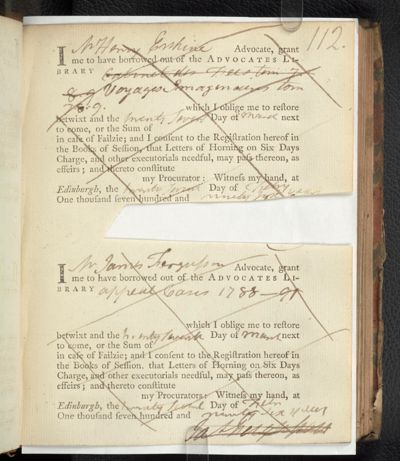 112.
I Mr Henry Erskine Advocate, grant
me to have borrowed out of the ADVOCATES LI-
BRARY Cabinet des Fees tom
8 & 9 Voyages Imaginaires tom
which I oblige me to restore
betwixt and the twenty Day of next
to come, or the Sum of
in case of Failzie; and I consent to the Registration hereof in
the Books of Session, that Letters of Horning on Six Days
Charge, and other executorials needful, may pass thereon, as
effeirs; and thereto constitute
my Procurator: Witness my hand, at
Edinburgh, the twenty Day of
One thousand seven hundred and ninety
I Mr James Fergusson Advocate, grant
me to have borrowed out of the ADVOCATES LI-
BRARY appeal Cases 1788–91
which I oblige me to restore
betwixt and the twenty Day of March next
to come, or the Sum of
in case of Failzie; and I consent to the Registration hereof in
the Books of Session, that Letters of Horning on Six Days
Charge, and other executorials needful, may pass thereon, as
effeirs; and thereto constitute
my Procurator: Witness my hand, at
Edinburgh, the twenty Day of
One thousand seven hundred and ninety six years